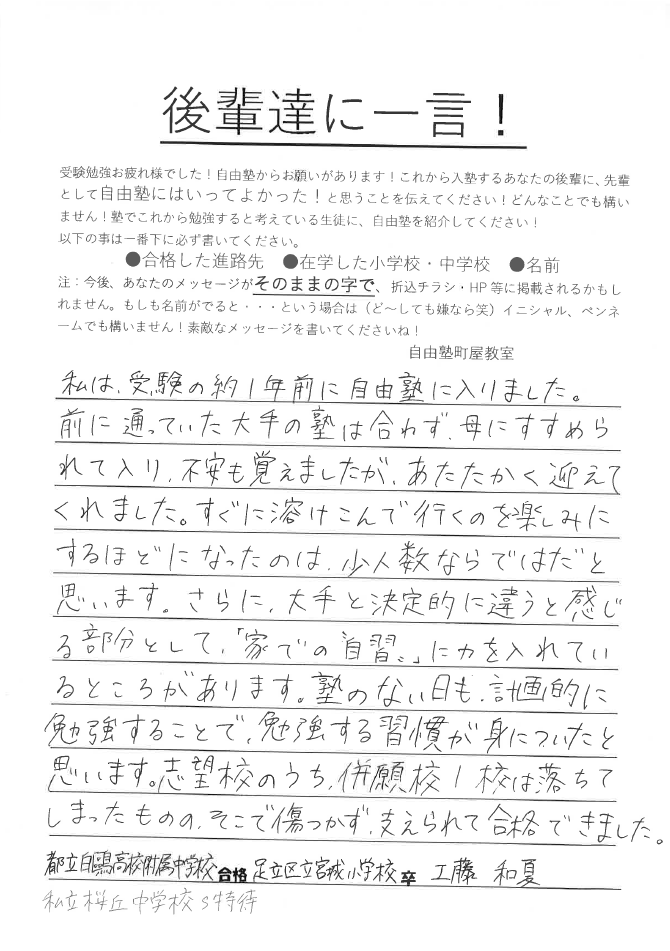 後輩達に一言！
受験勉強お疲れ様でした！自由塾からお願いがあります！これから入塾するあなたの後輩に、先輩
として自由塾にはいってよかった！と思うことを伝えてください！どんなことでも構い
ません！塾でこれから勉強すると考えている生徒に、自由塾を紹介してください！
以下の事は一番下に必ず書いてください。
●合格した進路先　●在学した小学校・中学校　●名前
注：今後、あなたのメッセージがそのままの字で、折込チラシ・HP等に掲載されるかもし
れません。もしも名前がでると・・・という場合は（ど～しても嫌なら笑）イニシャル、ペンネ
ームでも構いません！素敵なメッセージを書いてくださいね！
自由塾町屋教室
私は、受験の約1年前に自由塾に入りました。
前に通っていた大手の塾は合わず、母にすすめら
れて入り、不安も覚えましたが、あたたかく迎えて
くれました。すぐに溶けこんで行くのを楽しみに
するほどになったのは、少人数ならではだと
思います。さらに、大手と決定的に違うと感じ
る部分として、「家での自習」に力を入れてい
るところがあります。塾のない日も、計画的に
勉強することで、勉強する習慣が身についたと
思います。志望校のうち、併願校1校は落ちて
しまったものの、そこで傷つかず、支えられて合格できました。
都立白鷗高校附属中学校合格 足立区立宮城小学校卒 工藤 和夏
私立桜丘中学校S特待